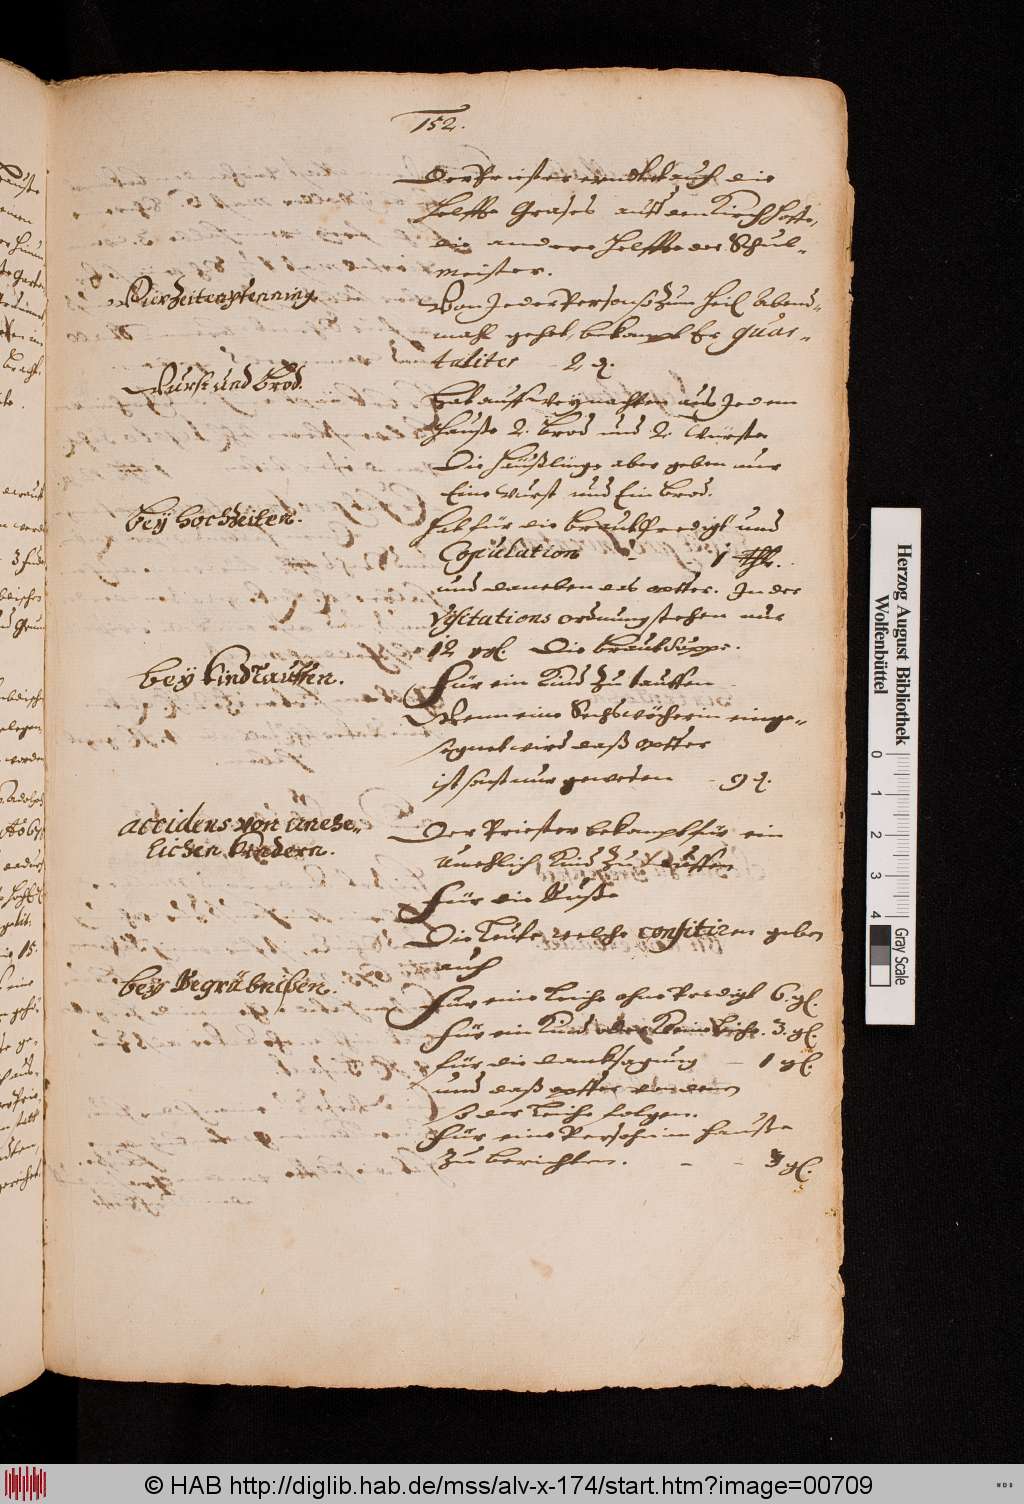 152.
Der Priester erndtet auch die
Helffte Grases auff dem Kirchhoffe,
die andere Helffte der Schul-
meister.
Vierzeitenpfenning.
Von Jeder Person so zum Heil. Abend-
mahl gehet, bekompt Er quar-
taliter 2 ₰.
Wurst und Brod.
Hat auff Weynachten aus Jedem
Hause 2. Brod und 2. Würste
Die Häußlinge aber geben nur
Eine Wurst und Ein Brod.
bey Hochzeiten.
Hat für die Brautpredigt und
Copulation - 1 thlr.
und daneben das opffer. In der
Visitations ordnung stehen nur
12 ggl. Die Brautsuppe.
bey Kindtauffen.
Für ein Kind zu tauffen
Wenn eine Sechswöcherin einge-
segnet wird daß opffer
ist sonst nur gewesen - 9 ₰.
accidens von unehe-
lichen Kindern.
Der Priester bekompt für ein
unehlich Kind zu tauffen
Für die Buße
Die Leute welche confitiren geben
auch
bey Begräbnißen.
Für eine Leiche ohne Predigt 6. gl.
Für ein Kind oder kleine Leiche. 3. gl.
für die dancksagung - 1 gl.
und daß opffer von denen
so der Leiche folgen.
Für eine Persohn im Hause
zu berichten. - - 3 gl.
Herzog August Bibliothek
Wolfenbüttel
0 1 2 3 4
Gray Scale
© HAB http://diglib.hab.de/mss/alv-x-174/start.htm?image=00709